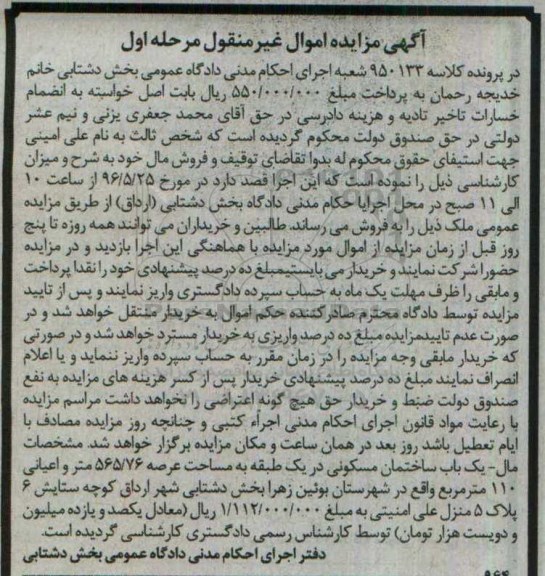 آگهی مزایده اموال غیر منقول مرحله اول
در پرونده کلاسه ۹۵۰۱۳۳ شعبه اجرای احکام مدنی دادگاه عمومی بخش دشتابی خانم
خدیجه رحمان به پرداخت مبلغ ۵۵۰/۰۰۰/۰۰۰ ریال بابت اصل خواسته به انضمام
خسارات تاخیر تادیه و هزینه دادرسی در حق آقای محمد جعفری یزنی و نیم عشر
دولتی در حق صندوق دولت محکوم گردیده است که شخص ثالث به نام علی امینی
جهت استیفای حقوق محکوم له بدوا تقاضای توقیف و فروش مال خود به شرح و میزان
کارشناسی ذیل را نموده است که این اجرا قصد دارد در مورخ ۹۶/۵/۲۵ از ساعت ۱۰
الی ۱۱ صبح در محل اجرایا حکام مدنی دادگاه بخش دشتابی (ارداق) از طریق مزایده
عمومی ملک ذیل را به فروش می رساند. طالبین و خریداران می توانند همه روزه تا پنج
روز قبل از زمان مزایده از اموال مورد مزایده با هماهنگی این اجرا بازدید و در مزایده
حضورا شرکت نمایند و خریدار می بایستیمبلغ ده درصد پیشنهادی خود را نقدا پرداخت
و مابقی را ظرف مهلت یک ماه به حساب سپرده دادگستری واریز نمایند و پس از تایید
مزایده توسط دادگاه محترم صادر کننده حکم اموال به خریدار منتقل خواهد شد و در
صورت عدم تاییدمزایده مبلغ ده درصد واریزی به خریدار مسترد خواهد شد و در صورتی
که خریدار مابقی وجه مزایده را در زمان مقرر به حساب سپرده واریز ننماید و یا اعلام
انصراف نمایند مبلغ ده درصد پیشنهادی خریدار پس از کسر هزینه های مزایده به نفع
صندوق دولت ضبط و خریدار حق هیچ گونه اعتراضی را نخواهد داشت مراسم مزایده
با رعایت مواد قانون اجرای احکام مدنی اجراء کتبی و چنانچه روز مزایده مصادف با
ایام تعطیل باشد روز بعد در همان ساعت و مکان مزایده برگزار خواهد شد. مشخصات
مال- یک باب ساختمان مسکونی در یک طبقه به مساحت عرصه ۵۶۵/۷۶ متر و اعیانی
۱۱۰ مترمربع واقع در شهرستان بوئین زهرا بخش دشتابی شهر ارداق کوچه ستایش ۶
پلاک ۵ منزل علی امنیتی به مبلغ ۱/۱۱۲/۰۰۰/۰۰۰ ریال (معادل یکصد و یازده میلیون
و دویست هزار تومان) توسط کارشناس رسمی دادگستری کارشناسی گردیده است.
دفتر اجرای احکام مدنی دادگاه عمومی بخش دشتابی